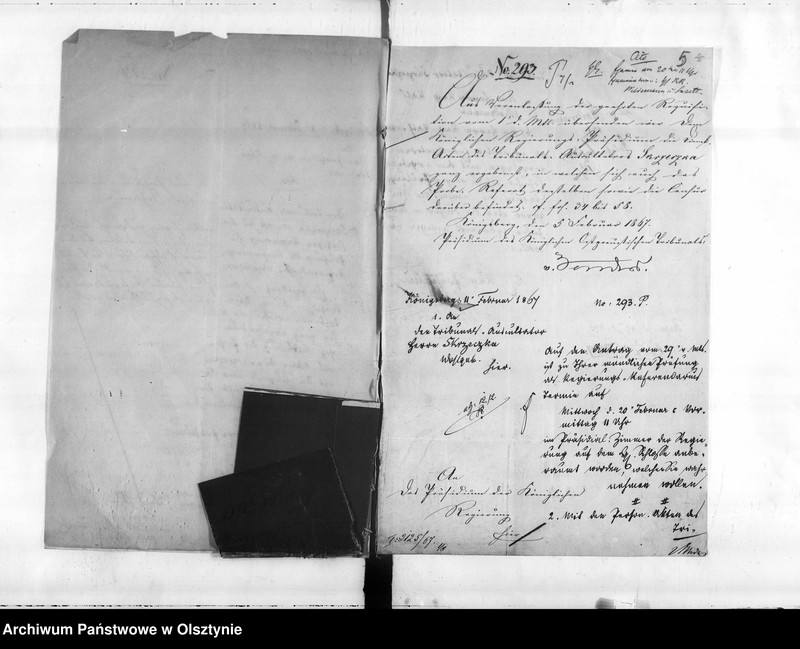 No 293.
5
Auf Veranlassung der geehrten Requisi-
tion vom 1 d. Mts. übersenden wir dem
Königlichen Regierungs-Präsidium die
Acten des Tribunals-Auscultators Skrzeczka
ganz ergebenst, in welchen sich auch das
Probe-Referat desselben sowie die Censur
darüber befindet. cf. fol. 34 bis 58.
Königsberg, den 5 Februar 1867.
Präsidium des Königlichen Ostpreußischen Tribunals
v. Zander.
Königsberg 11 Februar 1867
No: 293. P.
1. An
den Tribunals-Auscultator
Herrn Skrzeczka
Wohlgeb.
hier.
Auf den Antrag vom 29 v. Mts.
ist zu Ihrer mündlichen Prüfung
als Regierungs-Referendarius
Termin auf
Mittwoch d. 20 Februar c Vor-
mittag 11 Uhr
im Präsidial-Zimmer der Regie-
rung auf dem Kgl. Schlosse anbe-
raumt worden, welchen Sie wahr
nehmen wollen.
An
Das Präsidium der Königlichen
Regierung
hier
2. Mit den Person. Akten des
Tri-
Archiwum Państwowe w Olsztynie